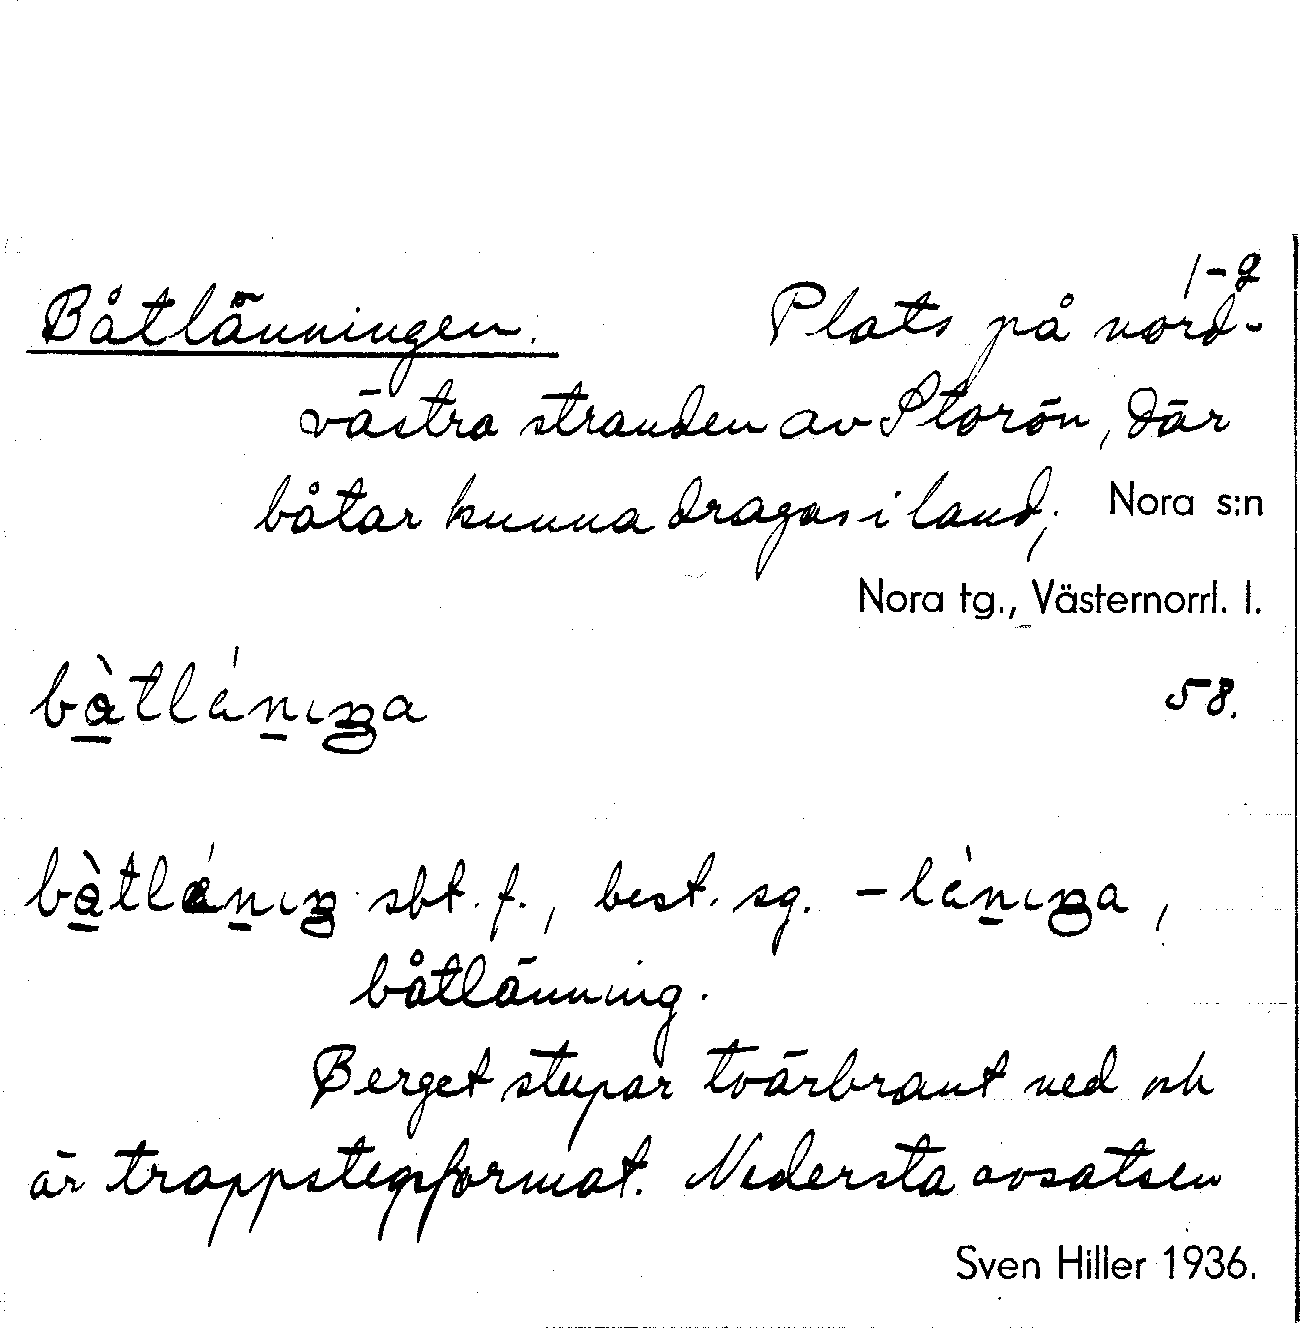 1-2
Båtlänningen. Plats på nord-
västra stranden av Storön, där
båtar kunna dragas i land; Nora s:n
Nora tg., Västernorrl. l.
bà̱tléṉıŋa 58.
bà̱tléṉıŋ sbt. f., best. sg. -léṉıŋa,
båtlänning.
Berget stupar tvärbrant ned och
är trappstegsformat. Nedersta avsatsen
Sven Hiller 1936.